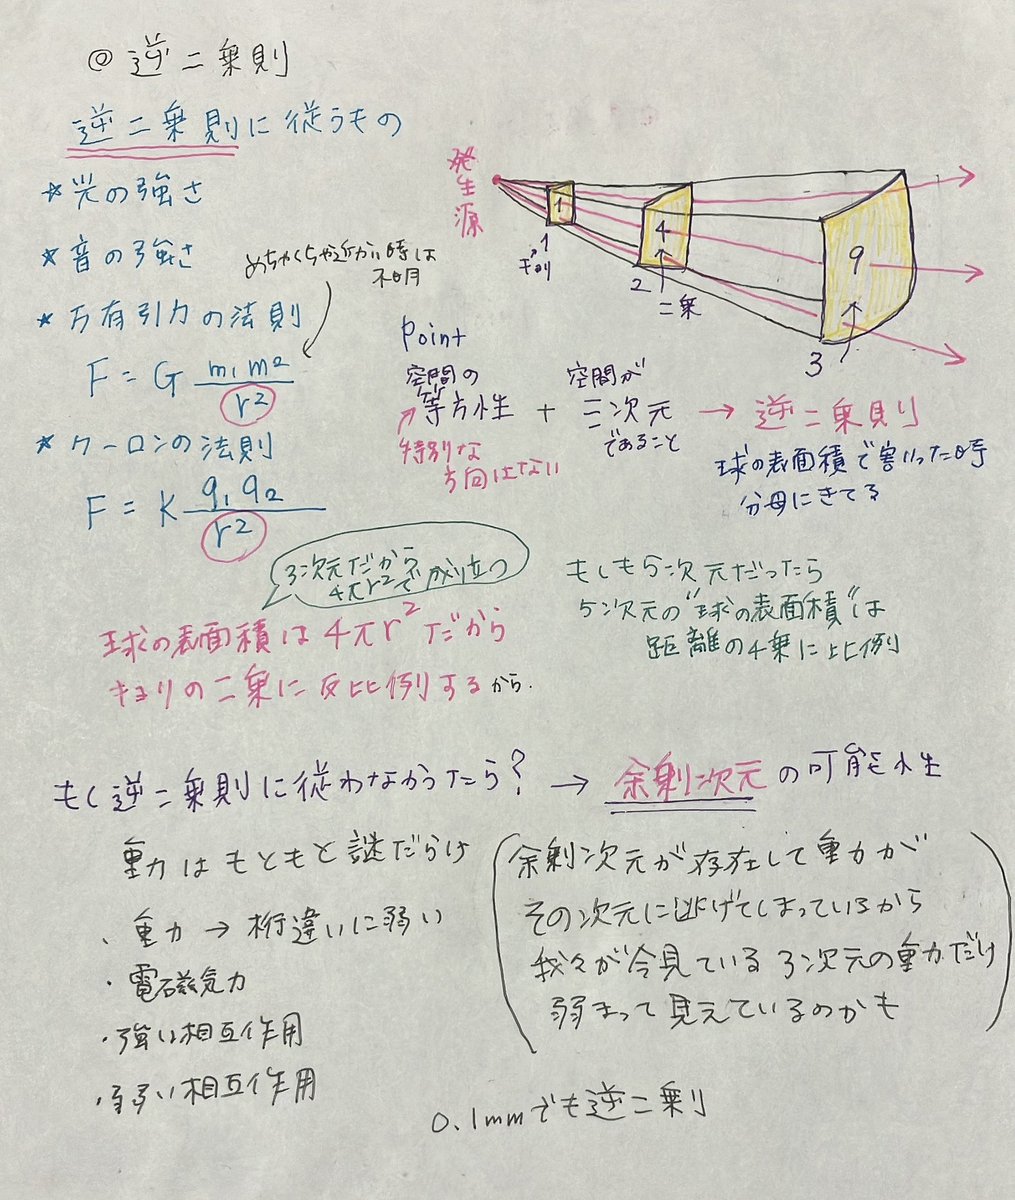 @ 逆二乗則
逆二乗則に従うもの
☆光の強さ
☆音の強さ
めちゃくちゃ近い時は
不明
☆万有引力の法則
F = G m₁m₂ / r²
☆クーロンの法則
F = K q₁q₂ / r²
発生源
1
4
9
1
キョリ
2
二乗
3
Point
空間の
等方性
特別な
方向はない
+
空間が
三次元
であること
→ 逆二乗則
球の表面積で割った時
分母にきてる
3次元だから
4πr²で成り立つ
球の表面積は4πr²だから
キョリの二乗に反比例するから.
もしも5次元だったら
5次元の"球の表面積"は
距離の4乗に比例
もし逆二乗則に従わなかったら? → 余剰次元の可能性
重力はもともと謎だらけ
・重力→桁違いに弱い
・電磁気力
・強い相互作用
・弱い相互作用
(余剰次元が存在して重力が
その次元に逃げてしまっているから
我々が今見ている3次元の重力だけ
弱まって見えているのかも)
0.1mmでも逆二乗則